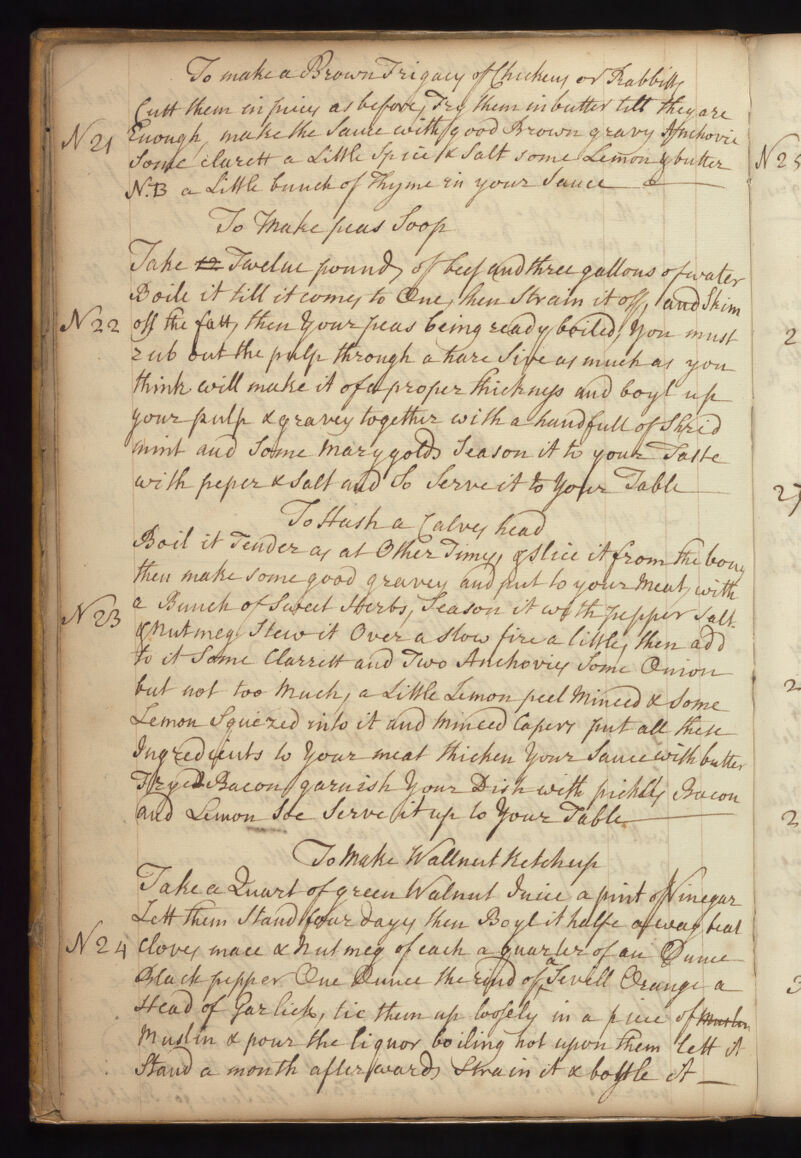 To make a Brown Frigacy of Chickens or Rabbits
Cutt them in pieces as before, Fry them in butter till they are
N 21 Enough make the Sauce with good Brown gravy Anchovie
Some clarett a Little Spice & Salt some Lemon & butter
N:B a Little bunch of Thyme in your Sauce
To Make peas Soop
Take 12 Twelve pounds of beef and three gallons of water
Boile it till it comes to One, then Strain it off, and Skim
N 22 off the fatt, then Your peas being ready boiled, You must
rub out the pulp through a hare Sive as much as you
think will make it of a proper thickness and boyl up
your pulp & gravey together with a handfull of Shrid
mint and Some Marygolds Season it to your Taste
with peper & Salt and So Serve it to Your Table
To Hash a Calves head
Boil it Tender as at Other Times, & slice it from the bons
then make some good gravey and put to your Meat, with
N 23 a Bunch of Sweet Herbs, Season it with pepper Salt
& Nutmeg Stew it Over a slow fire a little, then add
to it Some Clarrett and Two Anchovies Some Onion
but not too Much, a Little Lemon peel Minced & Some
Lemon Squezed into it and Minced Capers put all these
Ingredients to Your meat thicken Your Sauce with butter
Fryed Bacon garnish Your Dish with pickles Bacon
and Lemon Soe Serve it up to Your Table
To Make Wallnut Ketchup
Take a Quart of green Walnut Juice a pint of Vinegar
Lett them Stand four days then Boyl it halfe a way beat
N 24 cloves mace & Nutmeg of each a quarter of an Ounce
Black pepper One Ounce the rind of a Sevill Orange a
Head of Garlick, tie them up loosely in a piece of Muslin
Muslin & pour the liquor boiling hot upon them lett it
Stand a month afterwards Strain it & bottle it
N 25
2
27
2
2
3